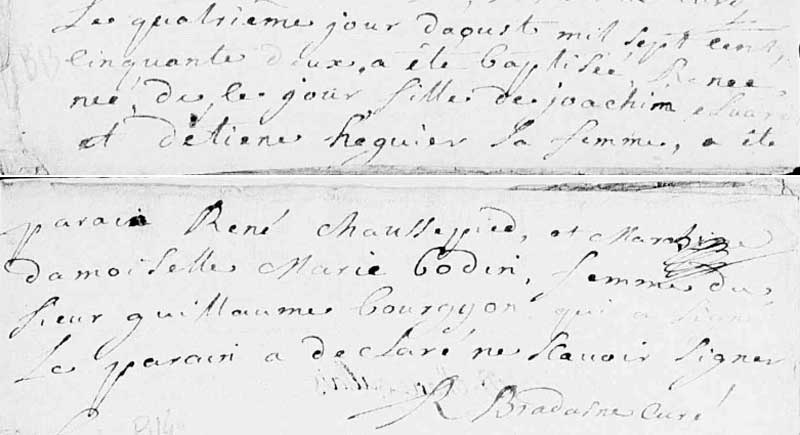 Le quatrième jour daoust mil sept cent,
cinquante deux, a été baptisée, Renee
neé, de ce jour fille de joachim
et détiene heguier sa femme, a été
parain René chaussepied, et Marraine
damoiselle Marie Bodin, femme du
sieur guillaume Bourgyon qui a signé
Le parain a declaré ne scavoir signer
R Bradasne Curé